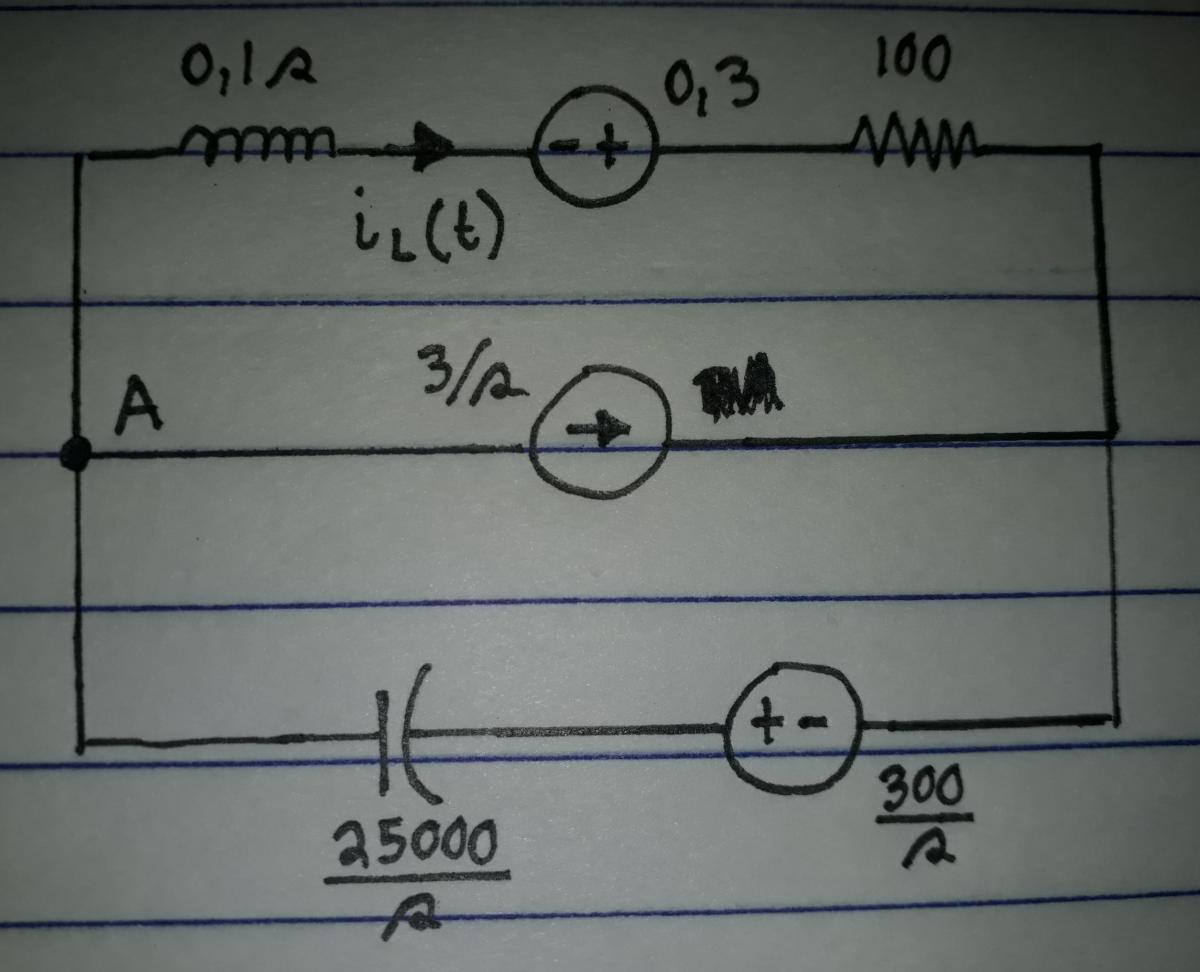 0,1s
0,3
100
- +
iL(t)
A
3/s
+ -
25000
s
300
s